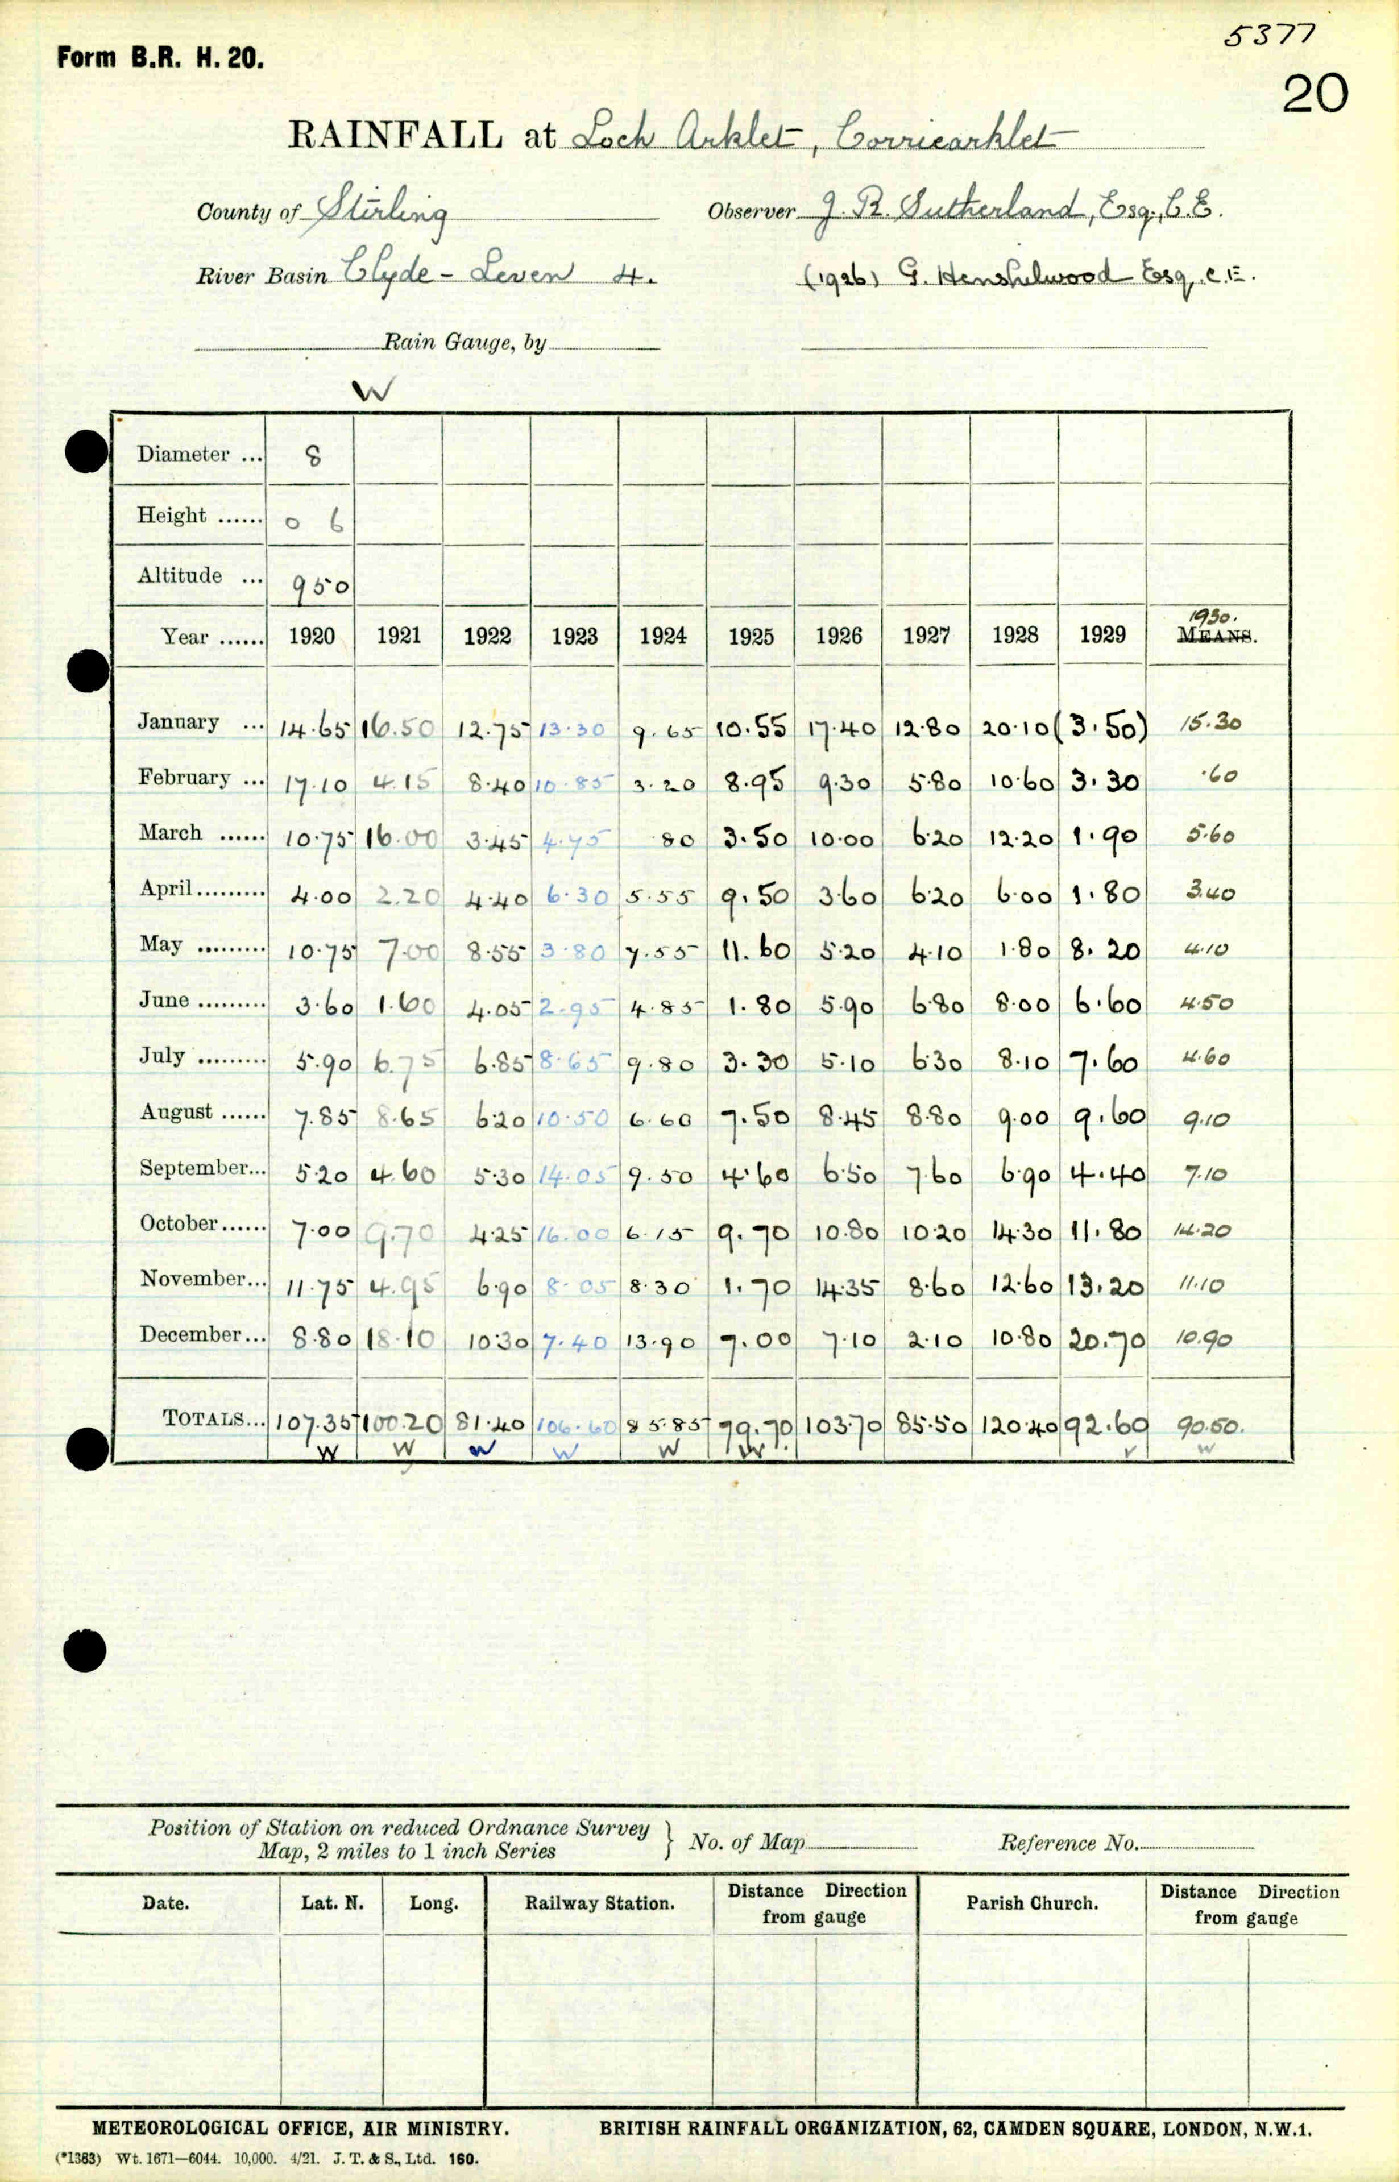 5377
Form B.R. H. 20.
20
RAINFALL at Loch Arklet, Corriearklet
County of Stirling Observer J. R. Sutherland, Esq., C.E.
River Basin Clyde - Leven 4. (1926) G. Henshelwood Esq. C.E.
Rain Gauge, by
W
Diameter ... 8
Height ...... 0 6
Altitude ... 950
1930.
Year ...... 1920 1921 1922 1923 1924 1925 1926 1927 1928 1929 MEANS.
January ... 14.65 16.50 12.75 13.30 9.65 10.55 17.40 12.80 20.10 (3.50) 15.30
February ... 17.10 4.15 8.40 10.85 3.20 8.95 9.30 5.80 10.60 3.30 .60
March ...... 10.75 16.00 3.45 4.75 80 3.50 10.00 6.20 12.20 1.90 5.60
April......... 4.00 2.20 4.40 6.30 5.55 9.50 3.60 6.20 6.00 1.80 3.40
May ......... 10.75 7.00 8.55 3.80 7.55 11.60 5.20 4.10 1.80 8.20 4.10
June ......... 3.60 1.60 4.05 2.95 4.85 1.80 5.90 6.80 8.00 6.60 4.50
July ......... 5.90 6.75 6.85 8.65 9.80 3.30 5.10 6.30 8.10 7.60 4.60
August ...... 7.85 8.65 6.20 10.50 6.60 7.50 8.45 8.80 9.00 9.60 9.10
September... 5.20 4.60 5.30 14.05 9.50 4.60 6.50 7.60 6.90 4.40 7.10
October...... 7.00 9.70 4.25 16.00 6.15 9.70 10.80 10.20 14.30 11.80 14.20
November... 11.75 4.95 6.90 8.05 8.30 1.70 14.35 8.60 12.60 13.20 11.10
December... 8.80 18.10 10.30 7.40 13.90 7.00 7.10 2.10 10.80 20.70 10.90
TOTALS... 107.35 100.20 81.40 106.60 85.85 79.70 103.70 85.50 120.40 92.60 90.50.
W W W W W W v W
Position of Station on reduced Ordnance Survey
Map, 2 miles to 1 inch Series } No. of Map Reference No.
Date. Lat. N. Long. Railway Station. Distance Direction from gauge Parish Church. Distance Direction from gauge
METEOROLOGICAL OFFICE, AIR MINISTRY. BRITISH RAINFALL ORGANIZATION, 62, CAMDEN SQUARE, LONDON, N.W.1.
(*1383) Wt. 1671—6044. 10,000. 4/21. J. T. & S., Ltd. 160.